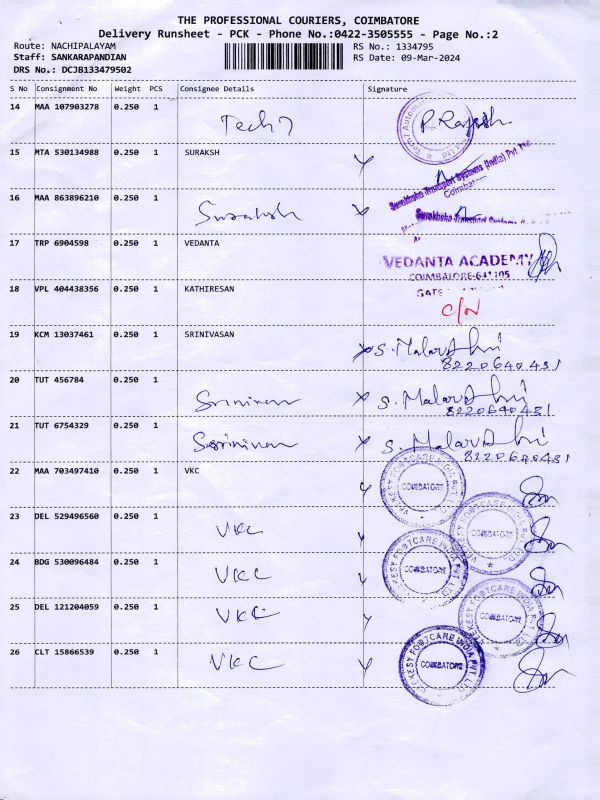 THE PROFESSIONAL COURIERS, COIMBATORE
Delivery Runsheet - PCK - Phone No.:0422-3505555 - Page No.:2
Route: NACHIPALAYAM RS No.: 1334795
Staff: SANKARAPANDIAN RS Date: 09-Mar-2024
DRS No.: DCJB133479502
S No Consignment No Weight PCS Consignee Details Signature
14 MAA 107903278 0.250 1 Tech 7 P. Rajesh
15 MTA 530134988 0.250 1 SURAKSH
Surakhsha Transport Systems (India) Pvt Ltd
Coimbatore
16 MAA 863896210 0.250 1 Suraksh
Surakhsha Transport Systems
17 TRP 6904598 0.250 1 VEDANTA VEDANTA ACADEMY
COIMBATORE-641105
18 VPL 404438356 0.250 1 KATHIRESAN GATE
C/N
19 KCM 13037461 0.250 1 SRINIVASAN S. Malar
8220640481
20 TUT 456784 0.250 1 Srinivasan S. Malar
8220640481
21 TUT 6754329 0.250 1 Srinivasan S. Malar
8220640481
22 MAA 703497410 0.250 1 VKC VEEKESY FOOTCARE INDIA PVT LTD COIMBATORE
23 DEL 529496560 0.250 1 VKC COIMBATORE
24 BDG 530096484 0.250 1 VKC VEEKESY FOOTCARE INDIA PVT LTD COIMBATORE
25 DEL 121204059 0.250 1 VKC COIMBATORE
26 CLT 15866539 0.250 1 VKC VEEKESY FOOTCARE INDIA PVT LTD COIMBATORE